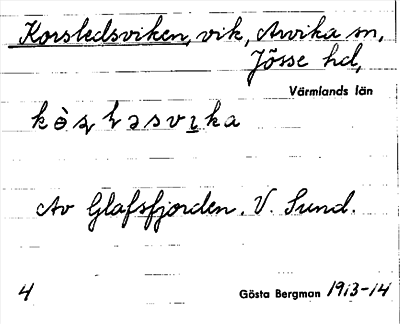 Korsledsviken, vik, Arvika sn,
Jösse hd,
Värmlands län
Av Glafsfjorden. V. Sund.
4 Gösta Bergman 1913-14